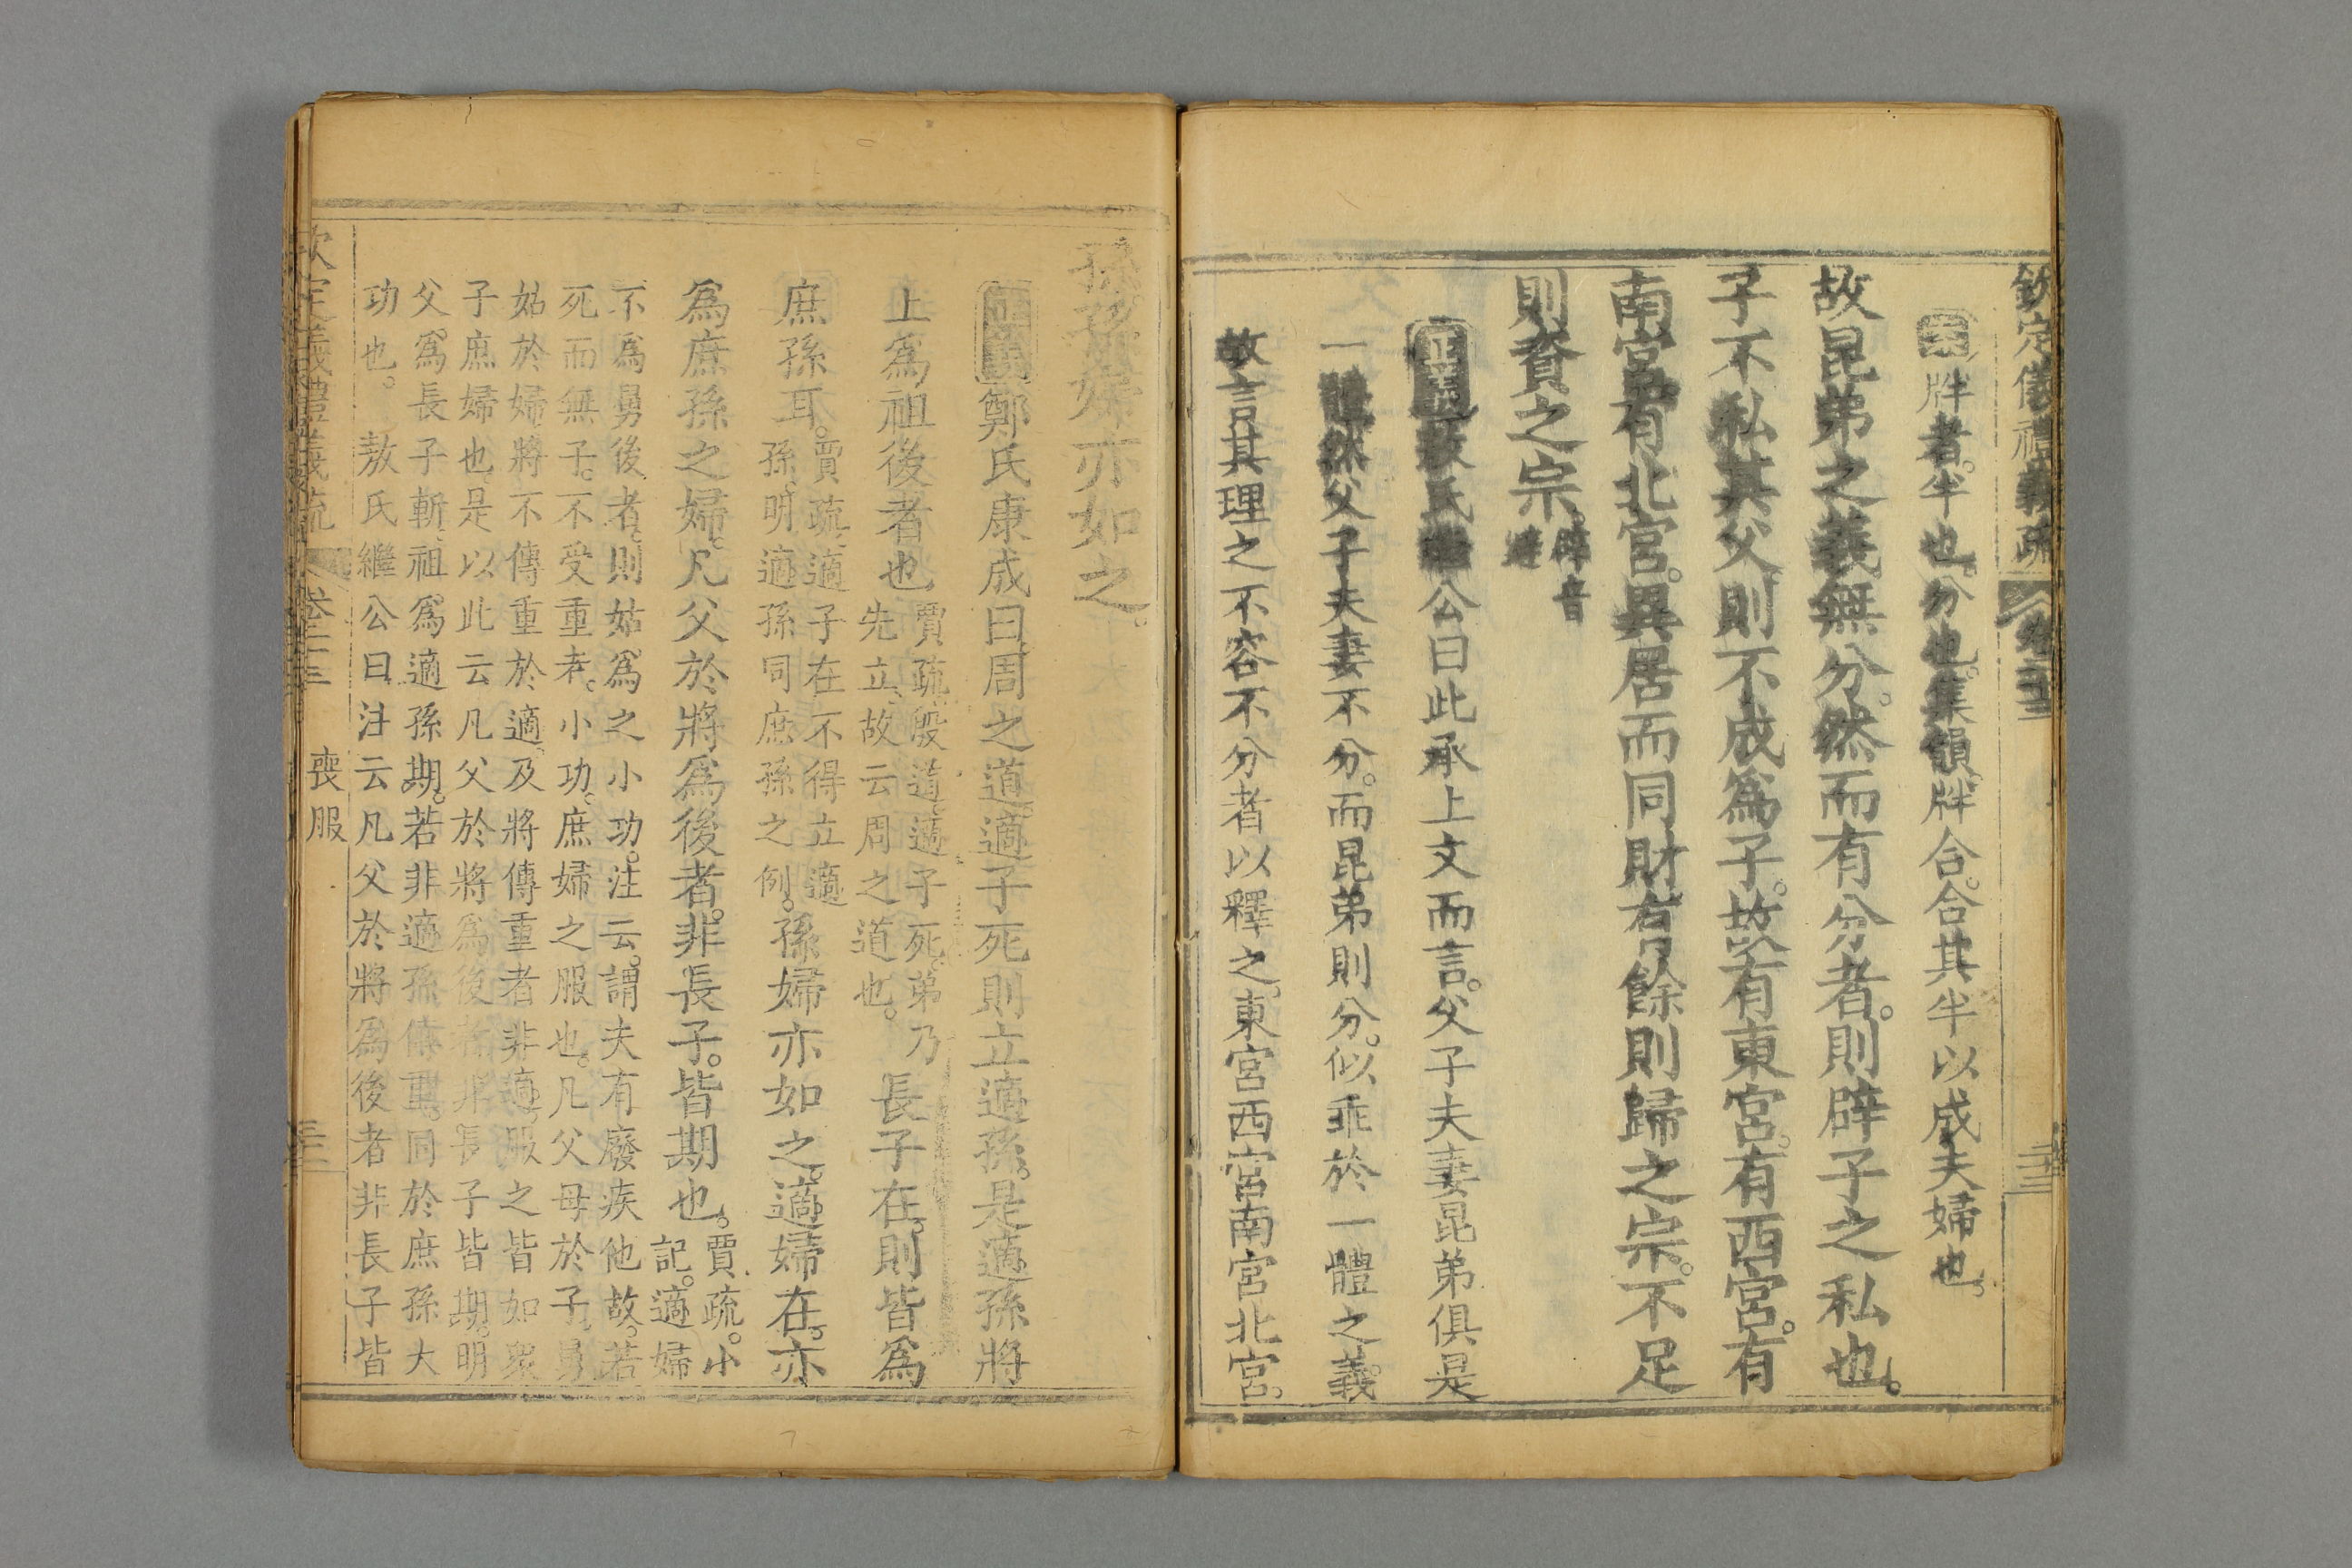 欽定儀禮義疏 卷二十三
牉者。半也。分也。集韻。牉合。合其半以成夫婦也。
故昆弟之義無分。然而有分者。則辟子之私也。
子不私其父。則不成爲子。故有東宮。有西宮。有
南宮。有北宮。異居而同財。有餘則歸之宗。不足
則資之宗。辟音避
正義敖氏繼公曰此承上文而言。父子夫妻昆弟俱是
一體。然父子夫妻不分。而昆弟則分。似乖於一體之義。
故言其理之不容不分者以釋之。東宮西宮南宮北宮。
孫。孫婦亦如之。
正義鄭氏康成曰周之道。適子死則立適孫。是適孫將
上爲祖後者也賈疏。殷道。適子死。弟乃先立。故云周之道也。長子在。則皆爲
庶孫耳。賈疏。適子在。不得立適孫。明適孫同庶孫之例。孫婦亦如之。適婦在。亦
爲庶孫之婦。凡父於將爲後者。非長子。皆期也。賈疏。小記。適婦
不爲舅後者。則姑爲之小功。注云。謂夫有廢疾他故。若
死而無子。不受重者。小功。庶婦之服也。凡父母於子。舅
姑於婦。將不傳重於適。及將傳重者非適。服之皆如衆
子庶婦也。是以此云凡父於將爲後者非長子皆期。明
父爲長子斬。祖爲適孫期。若非適孫傳重。同於庶孫大
功也。敖氏繼公曰注云凡父於將爲後者非長子皆
欽定儀禮義疏 卷二十三 喪服